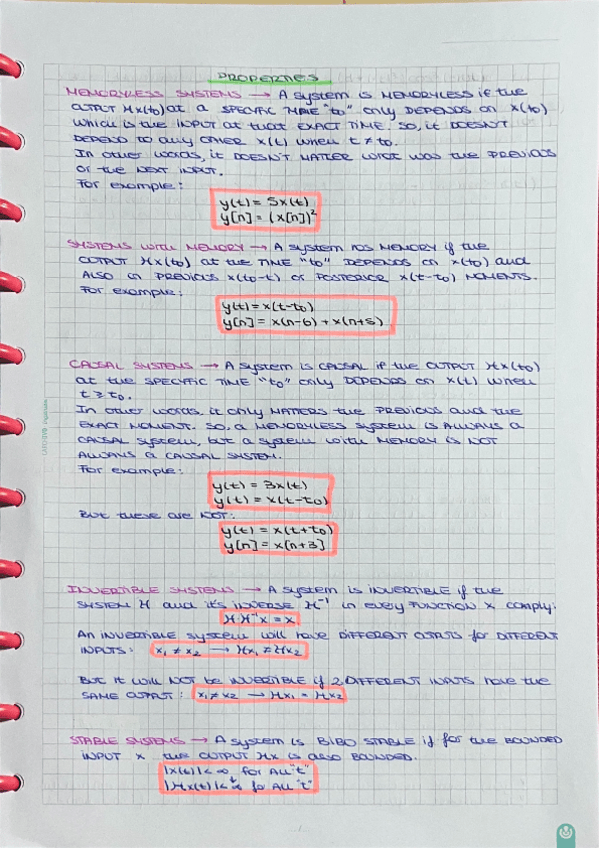 PROPERTIES
MEMORYLESS SYSTEMS → A system is MEMORYLESS if the
OUTPUT Hx(to) at a SPECIFIC TIME "to" only DEPENDS on x(to)
which is the INPUT at that EXACT TIME. So, it DOESN'T
DEPEND to any OTHER x(t) when t ≠ to.
In other words, it DOESN'T MATTER what was the PREVIOUS
or the NEXT INPUT.
For example:
y(t) = 5x(t)
y[n] = (x[n])²
SYSTEMS with MEMORY → A system has MEMORY if the
OUTPUT Hx(to) at the TIME "to" DEPENDS on x(to) and
ALSO on PREVIOUS x(to-t) or POSTERIOR x(t-to) MOMENTS.
For example:
y(t) = x(t-to)
y[n] = x(n-6) + x(n+5)
CAUSAL SYSTEMS → A system is CAUSAL if the OUTPUT Hx(to)
at the SPECYFIC TIME "to" only DEPENDS on x(t) when
t ≥ to.
In other words, it only MATTERS the PREVIOUS and the
EXACT MOMENT. SO, a MEMORYLESS system is ALWAYS a
CAUSAL system, but a system with MEMORY is NOT
ALWAYS a CAUSAL SYSTEM.
For example:
y(t) = 3x(t)
y(t) = x(t-to)
But these are NOT:
y(t) = x(t+to)
y[n] = x[n+3]
INVERTIBLE SYSTEMS → A system is INVERTIBLE if the
SYSTEM H and it's INVERSE H⁻¹ in every FUNCTION x comply:
H·H⁻¹x = x
An INVERTIBLE system will have DIFFERENT OUTPUTS for DIFFERENT
INPUTS: x₁ ≠ x₂ → Hx₁ ≠ Hx₂
But it will NOT be INVERTIBLE if 2 DIFFERENT INPUTS have the
SAME OUTPUT: x₁ ≠ x₂ → Hx₁ = Hx₂
STABLE SYSTEMS → A system is BIBO STABLE if for the BOUNDED
INPUT x the OUTPUT Hx is also BOUNDED.
|x(t)| < ∞ for ALL "t"
|Hx(t)| < ∞ for ALL "t"